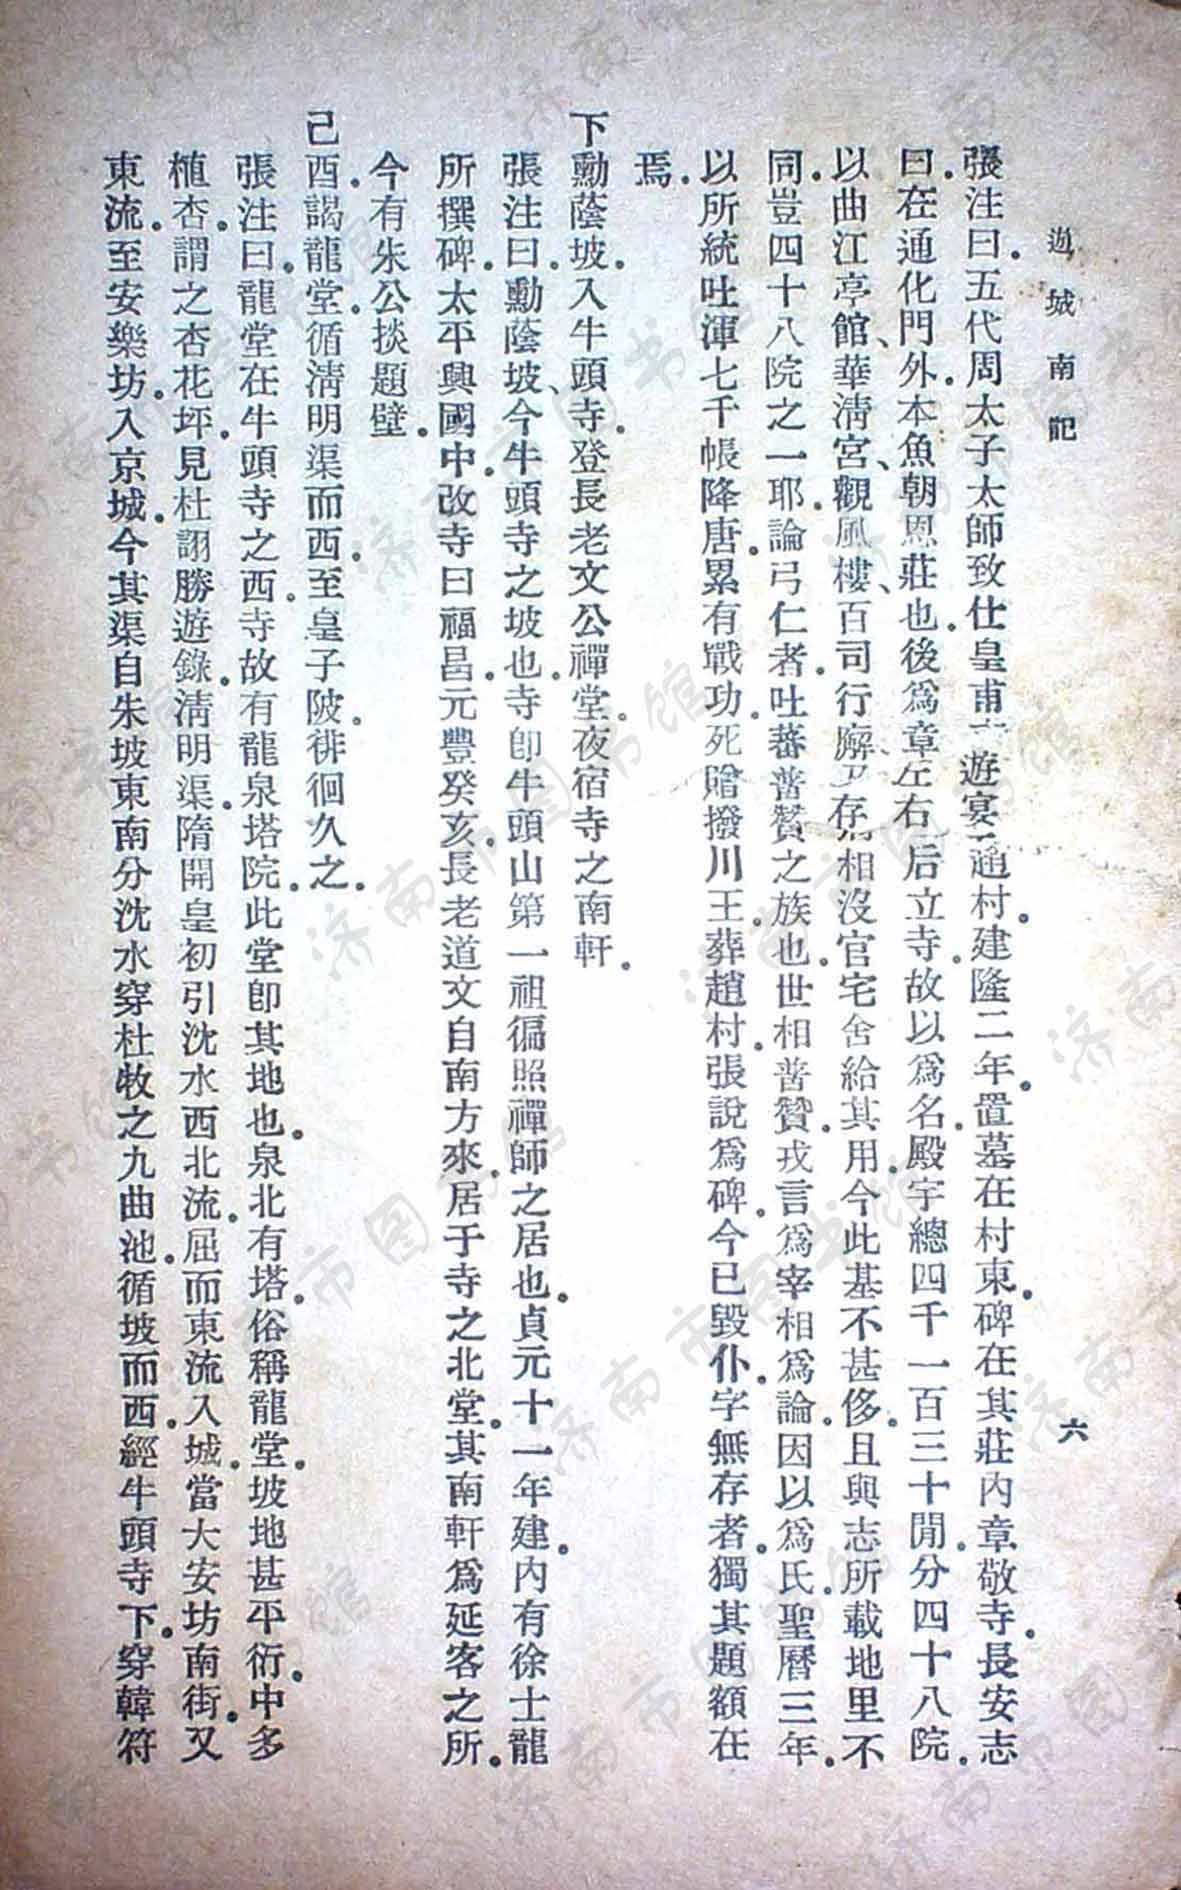 遊城南記　六
張注曰。五代周太子太師致仕皇甫遊宴趙村。建隆二年。置墓在村東。碑在其莊內。章敬寺。長安志
曰。在通化門外。本魚朝恩莊也。後爲章左右后立寺。故以爲名。殿宇總四千一百三十閒。分四十八院。
以曲江亭館、華淸宮、觀風樓、百司行廨、存相沒官宅舍給其用。今此基不甚侈。且與志所載地里不
同。豈四十八院之一耶。論弓仁者。吐蕃普贊之族也。世相普贊。戎言爲宰相爲論。因以爲氏。聖曆三年。
以所統吐渾七千帳降唐。累有戰功。死贈撥川王。葬趙村。張說爲碑。今已毀仆。字無存者。獨其題額在
焉。
下勳蔭坡。入牛頭寺。登長老文公禪堂。夜宿寺之南軒。
張注曰。勳蔭坡、今牛頭寺之坡也。寺卽牛頭山第一祖徧照禪師之居也。貞元十一年建。內有徐士龍
所撰碑。太平興國中。改寺曰福昌。元豐癸亥。長老道文自南方來。居于寺之北堂。其南軒爲延客之所。
今有朱公掞題壁。
己酉。謁龍堂。循淸明渠而西。至皇子陂。徘徊久之。
張注曰。龍堂在牛頭寺之西。寺故有龍泉塔院。此堂卽其地也。泉北有塔。俗稱龍堂坡。地甚平衍。中多
植杏。謂之杏花坪。見杜詡勝遊錄。淸明渠。隋開皇初引沈水西北流。屈而東流入城。當大安坊南街。又
東流。至安樂坊。入京城。今其渠自朱坡東南分沈水。穿杜牧之九曲池。循坡而西。經牛頭寺下。穿韓符